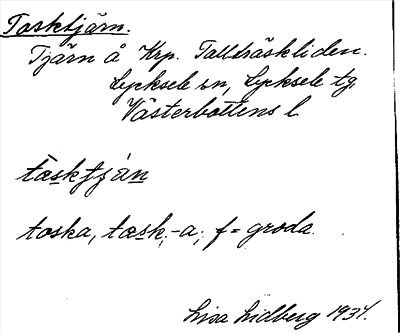 Tosktjärn.
Tjärn å Krp. Tallträskliden.
Lycksele sn, Lycksele tg,
Västerbottens l.
tœskƒján
toska, tœsk, -a; f = groda.
Lisa Lidberg 1934.